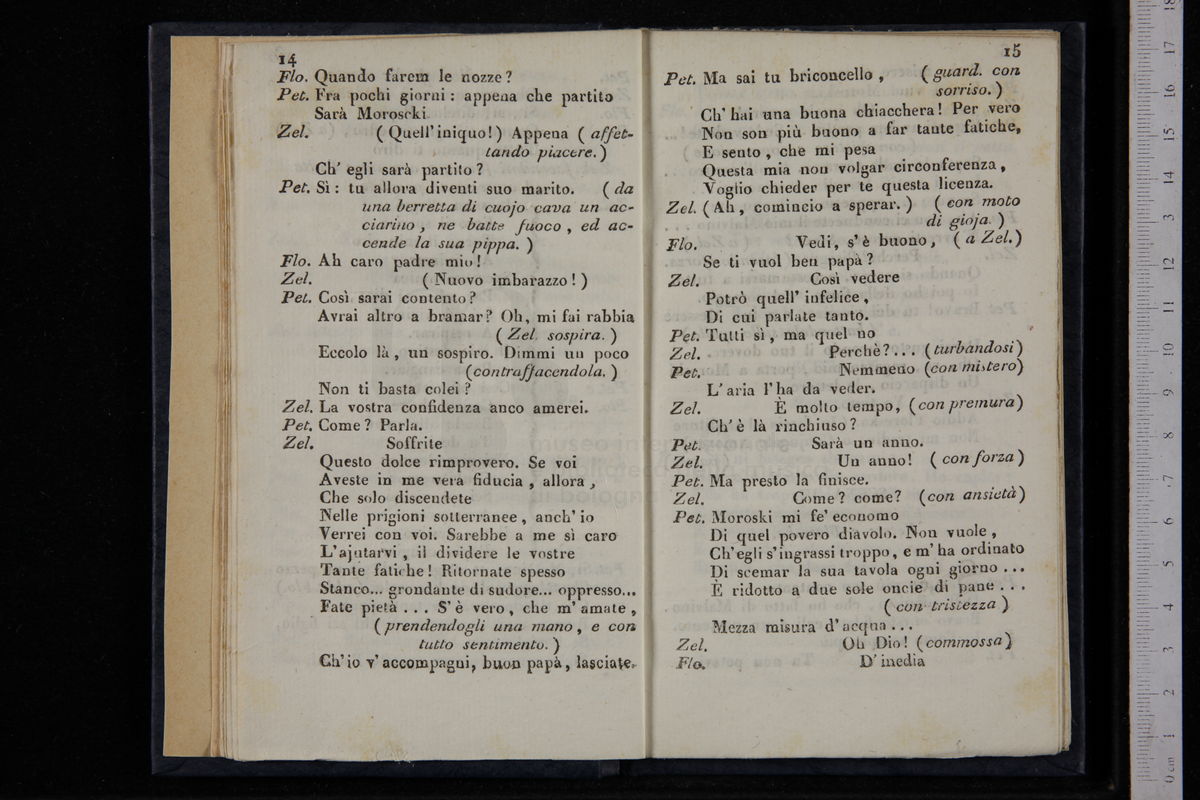 14
Flo. Quando farem le nozze?
Pet. Fra pochi giorni: appena che partito
Sarà Moroscki.
Zel. (Quell' iniquo!) Appena (affet-
tando piacere.)
Ch' egli sarà partito?
Pet. Sì: tu allora diventi suo marito. (da
una berretta di cuojo cava un ac-
ciarino, ne batte fuoco, ed ac-
cende la sua pippa.)
Flo. Ah caro padre mio!
Zel. (Nuovo imbarazzo!)
Pet. Così sarai contento?
Avrai altro a bramar? Oh, mi fai rabbia
(Zel. sospira.)
Eccolo là, un sospiro. Dimmi un poco
(contraffacendola.)
Non ti basta colei?
Zel. La vostra confidenza anco amerei.
Pet. Come? Parla.
Zel. Soffrite
Questo dolce rimprovero. Se voi
Aveste in me vera fiducia, allora,
Che solo discendete
Nelle prigioni sotterranee, anch' io
Verrei con voi. Sarebbe a me sì caro
L' ajutarvi, il dividere le vostre
Tante fatiche! Ritornate spesso
Stanco... grondante di sudore... oppresso...
Fate pietà... S' è vero, che m' amate,
(prendendogli una mano, e con
tutto sentimento.)
Ch' io v' accompagni, buon papà, lasciate.
15
Pet. Ma sai tu briconcello, (guard. con
sorriso.)
Ch' hai una buona chiacchera! Per vero
Non son più buono a far tante fatiche,
E sento, che mi pesa
Questa mia non volgar circonferenza,
Voglio chieder per te questa licenza.
Zel. (Ah, comincio a sperar.) (con moto
di gioja.)
Flo. Vedi, s' è buono, (a Zel.)
Se ti vuol ben papà?
Zel. Così vedere
Potrò quell' infelice,
Di cui parlate tanto.
Pet. Tutti sì, ma quel no
Zel. Perchè?... (turbandosi)
Pet. Nemmeno (con mistero)
L' aria l' ha da veder.
Zel. È molto tempo, (con premura)
Ch' è là rinchiuso?
Pet. Sarà un anno.
Zel. Un anno! (con forza)
Pet. Ma presto la finisce.
Zel. Come? come? (con ansietà)
Pet. Moroski mi fe' economo
Di quel povero diavolo. Non vuole,
Ch' egli s' ingrassi troppo, e m' ha ordinato
Di scemar la sua tavola ogni giorno...
È ridotto a due sole oncie di pane...
(con tristezza)
Mezza misura d' acqua...
Zel. Oh Dio! (commossa)
Flo. D' inedia